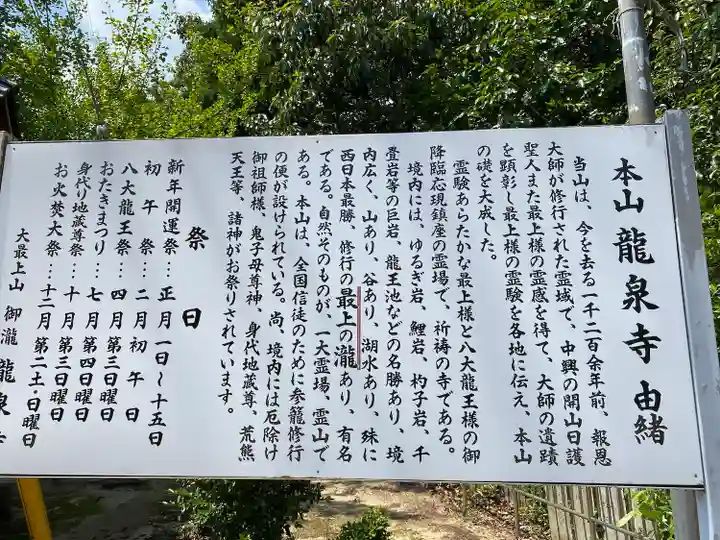 本山 龍泉寺 由緒
当山は、今を去る一千二百余年前、報恩
大師が修行された霊域で、中興の開山日護
聖人また最上様の霊感を得て、大師の遺蹟
を顕彰し最上様の霊験を各地に伝え、本山
の礎を大成した。
霊験あらたかな最上様と八大龍王様の御
降臨応現鎮座の霊場で、祈祷の寺である。
境内には、ゆるぎ岩、鯉岩、杓子岩、千
畳岩等の巨岩、龍王池などの名勝あり、境
内広く、山あり、谷あり、湖水あり、殊に
西日本最勝、修行の最上の瀧あり、有名
である。自然そのものが、一大霊場、霊山で
ある。本山は、全国信徒のために参籠修行
の便が設けられている。尚、境内には厄除け
御祖師様、鬼子母尊神、身代り地蔵尊、荒熊
天王等、諸神がお祭りされています。
祭日
新年開運祭…正月一日〜十五日
初午祭…二月初午日
八大龍王祭…四月第三日曜日
おたきまつり…七月第四日曜日
身代り地蔵尊祭…十月第三日曜日
お火焚大祭…十二月第二土・日曜日
大最上山 御瀧 龍泉